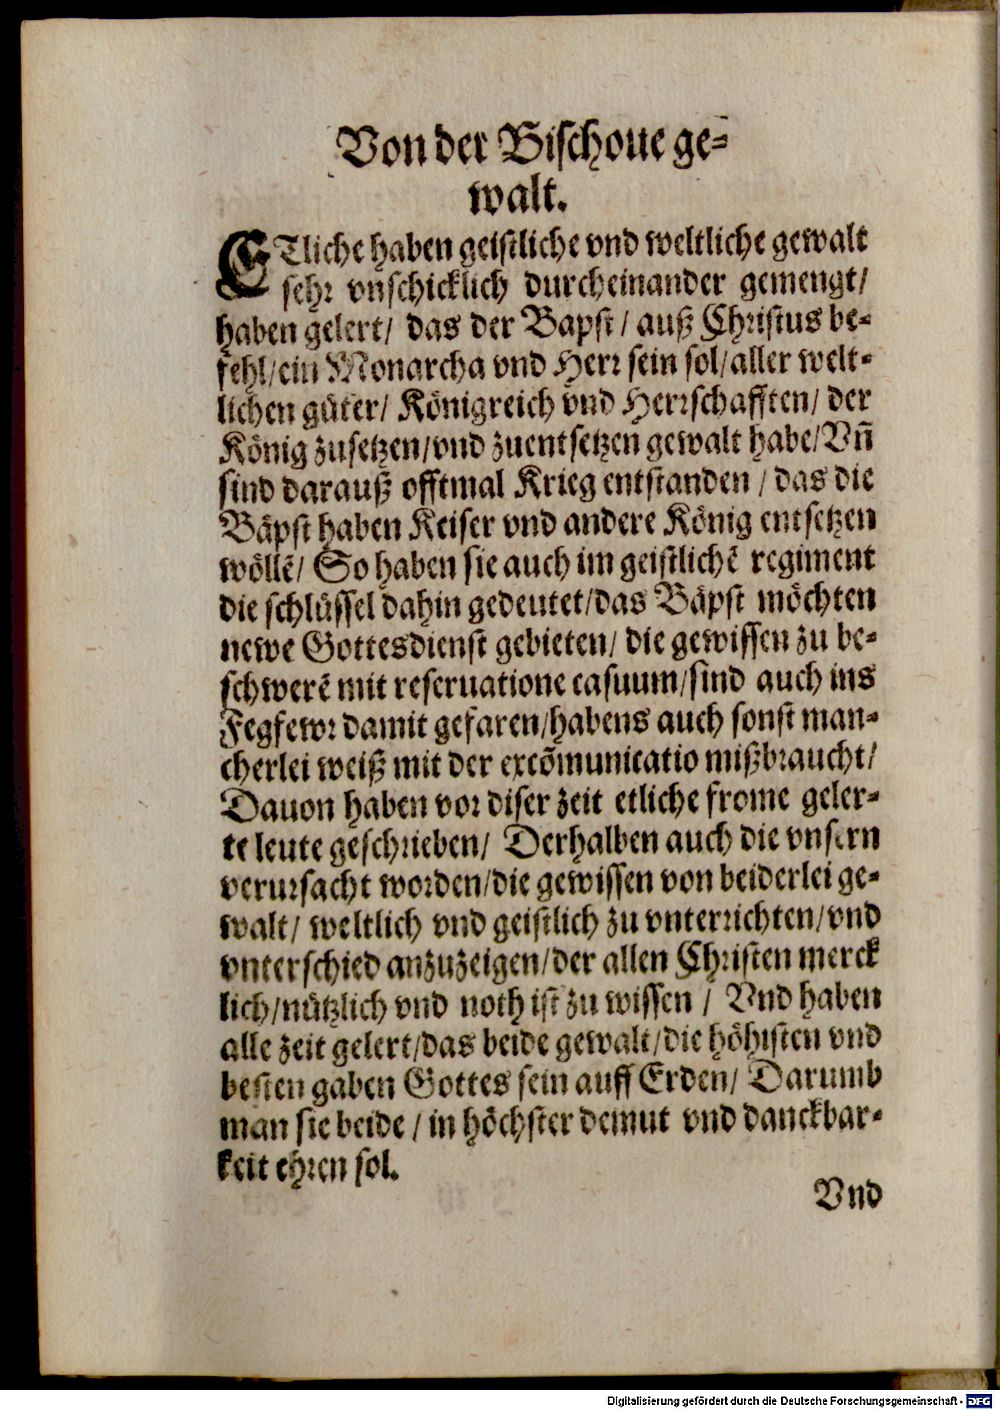 Von der Bischoue ge=
walt.
ETliche haben geistliche vnd weltliche gewalt
sehr vnschicklich durcheinander gemengt/
haben gelert/ das der Bapst/ auß Christus be=
fehl/ein Monarcha vnd Herr sein sol/aller welt=
lichen güter/ Königreich vnd Herrschafften/ der
König zusetzen/vnd zuentsetzen gewalt habe/Vñ
sind darauß offtmal Krieg entstanden/das die
Bäpst haben Keiser vnd andere König entsetzen
wöllē/ So haben sie auch im geistlichē regiment
die schlüssel dahin gedeutet/das Bäpst möchten
newe Gottesdienst gebieten/ die gewissen zu be=
schwerē mit reseruatione casuum/sind auch ins
Fegfewr damit gefaren/habens auch sonst man=
cherlei weiß mit der excōmunicatio mißbraucht/
Dauon haben vor diser zeit etliche frome geler=
te leute geschrieben/ Derhalben auch die vnsern
verursacht worden/die gewissen von beiderlei ge=
walt/ weltlich vnd geistlich zu vnterrichten/vnd
vnterschied anzuzeigen/der allen Christen merck
lich/nützlich vnd noth ist zu wissen/ Vnd haben
alle zeit gelert/das beide gewalt/die höhisten vnd
besten gaben Gottes sein auff Erden/ Darumb
man sie beide/in höchster demut vnd danckbar=
keit ehren sol.
Vnd
Digitalisierung gefördert durch die Deutsche Forschungsgemeinschaft - DFG